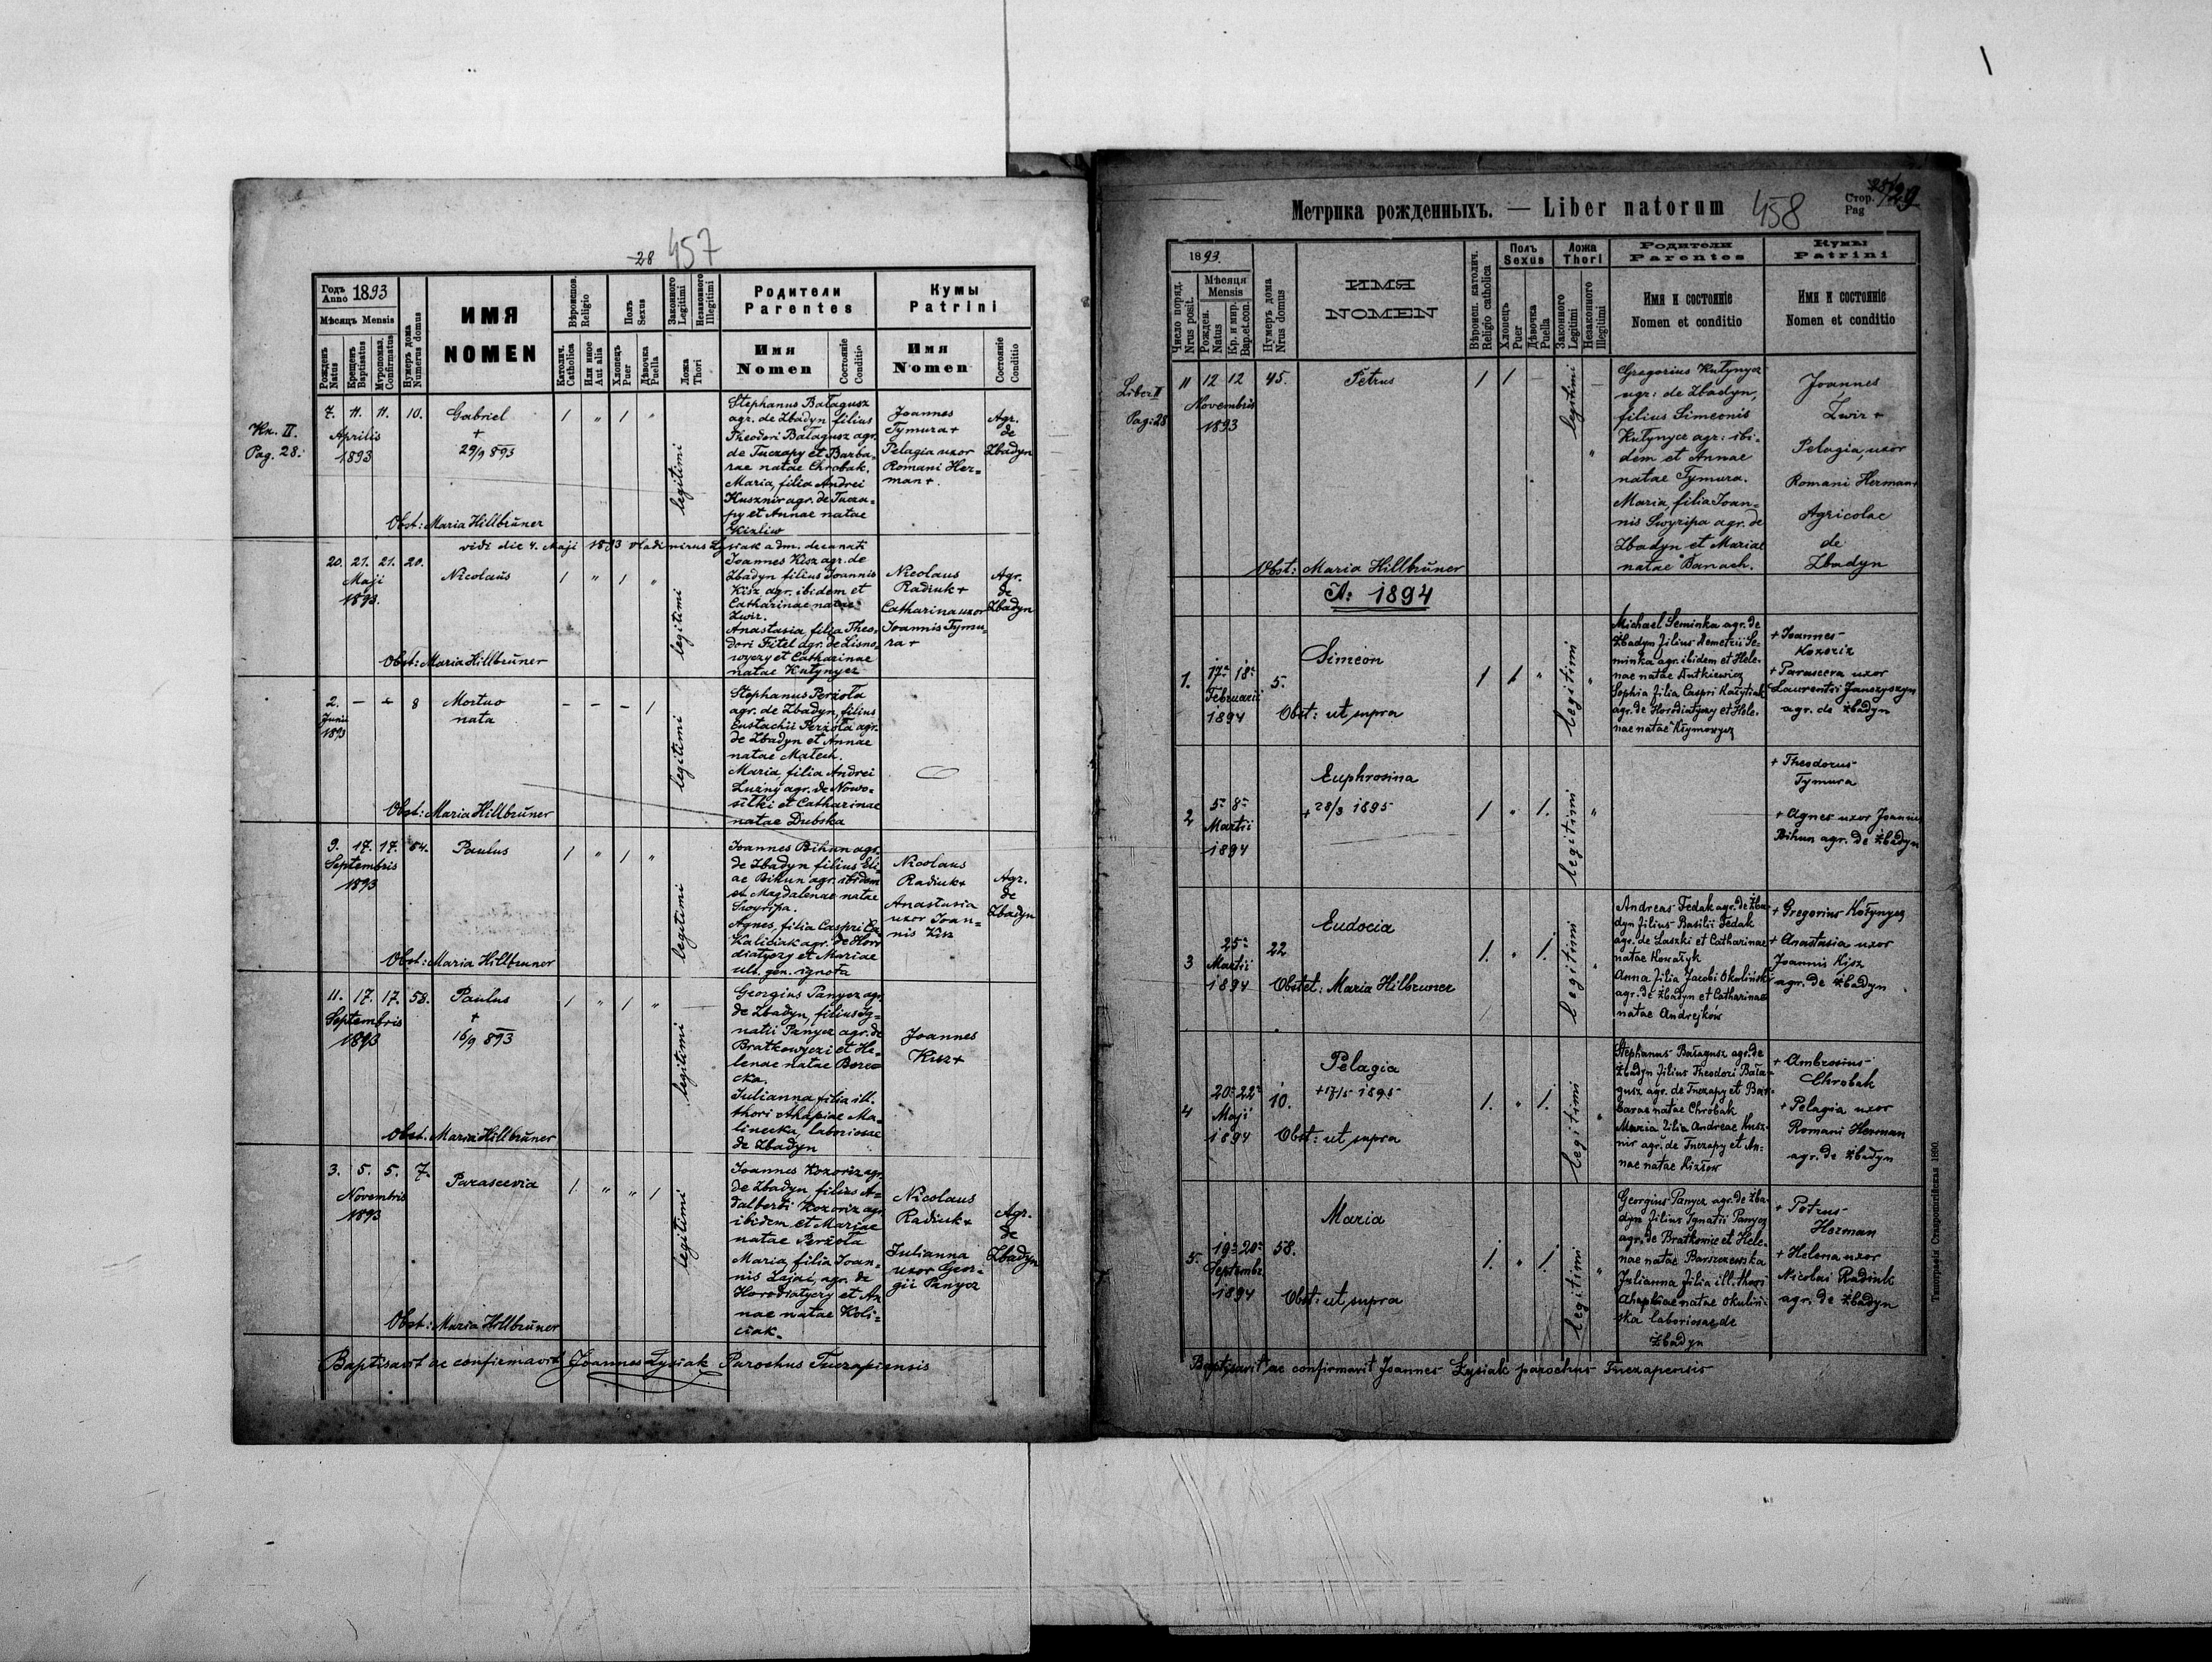 -28 457
Годъ Anno 1893
Мѣсяць Mensis
Рожденъ Natus
Крещенъ Baptisatus
Мѵропомаз. Confirmatus
Нумеръ дома Numerus domus
ИМЯ
NOMEN
Вѣроиспов. Religio
Католич. Catholica
Или иное Aut alia
Полъ Sexus
Хлопецъ Puer
Дѣвочка Puella
Законного Legitimi
Незаконного Illegitimi
Ложа Thori
Родители
Parentes
Имя
Nomen
Состояніе Conditio
Кумы
Patrini
Имя
Nomen
Состояніе Conditio
Кн. II.
Pag. 28.
7. 11. 11. 10.
Aprilis
1893
Gabriel
+
29/9 893
1 " 1 "
legitimi
Stephanus Bałagusz
agr. de Zbadyn filius
Theodori Bałagusz agr.
de Tuczapy et Barba-
rae natae Chrobak.
Maria, filia Andrei
Kusznir agr. de Tucza-
py et Annae natae
Kizliw
Joannes
Tymura +
Pelagia uxor
Romani Her-
man +.
Agr.
de
Zbadyn
Obst: Maria Hillbrüner
vidi die 4. Maji 1893 Vladimirus Łysiak adm. decanati
20. 21. 21. 20.
Maji
1893.
Nicolaus
1 " 1 "
legitimi
Joannes Kisz agr. de
Zbadyn filius Joannis
Kisz agr. ibidem et
Catharinae natae
Zwir.
Anastasia, filia Theo-
dori Fitel agr. de Lisno-
wyczy et Catharinae
natae Kutynycz
Nicolaus
Radiuk +
Catharina uxor
Joannis Tymu-
ra +
Agr.
de
Zbadyn
Obst: Maria Hillbrüner
2. - - 8
Junii
1893
Mortuo
nata
- - - 1
legitimi
Stephanus Perżoła
agr. de Zbadyn, filius
Eustachii Perżoła agr.
de Zbadyn et Annae
natae Małech.
Maria, filia Andrei
Luzny agr. de Nowo-
siłki et Catharinae
natae Dubska
Obst: Maria Hillbrüner
9. 17. 17. 54.
Septembris
1893
Paulus
1 " 1 "
legitimi
Joannes Bihun agr.
de Zbadyn filius Eli-
ae Bihun agr. ibidem
et Magdalenae natae
Swyripa.
Agnes, filia Caspri Ca-
Kaliciak agr. de Horo
diatyczy et Mariae
ult. gen. ignota
Nicolaus
Radiuk +
Anastasia
uxor Joan-
nis Kisz
Agr.
de
Zbadyn
Obst: Maria Hillbruner
11. 17. 17. 58.
Septembris
1893
Paulus
+
16/9 893
1 " 1 "
legitimi
Georgius Panycz agr.
de Zbadyn, filius Ig-
natii Panycz agr. de
Bratkowyczi et He-
lenae natae
cka.
Julianna filia ill.
thori Ahapiae Ma-
linecka, laboriosae
de Zbadyn
Joannes
Kisz +
Obst: Maria Hillbrüner
3. 5. 5. 7.
Novembris
1893
Parascevia
1. " " 1
legitimi
Joannes Kozoriz agr.
de Zbadyn filius A-
dalberti Kozoriz agr.
ibidem et Mariae
natae Perżoła
Maria, filia Joan-
nis Zajac, agr. de
Horodiatyczy et An
nae natae Koli-
ciak.
Nicolaus
Radiuk +
Julianna
uxor Geor-
gii Panycz
Agr.
de
Zbadyn
Obst: Maria Hillbrüner
Baptisavit ac confirmavit Joannes Łysiak Parochus Tuczapiensis
Метрика рожденныхъ. — Liber natorum 458
Стор. Pag 29
1893.
Число поряд. Nrus posit.
Мѣсяця Mensis
Рожден. Natus
Кр. и мир. Bap. et con.
Нумеръ дома Nrus domus
ИМЯ
NOMEN
Вѣроисп. католич. Religio catholica
Полъ Sexus
Хлопецъ Puer
Дѣвочка Puella
Ложа Thori
Законного Legitimi
Незаконного Illegitimi
Родители
Parentes
Имя и состояніе
Nomen et conditio
Кумы
Patrini
Имя и состояніе
Nomen et conditio
Liber II
Pag: 28
11 12 12 45.
Novembris
1893
Petrus
1 1 -
legitimi
Gregorius Kutynycz
agr: de Zbadyn,
filius Simeonis
Kutynycz agr: ibi-
dem et Annae
natae Tymura.
Maria, filia Joan-
nis Swyripa agr. de
Zbadyn et Mariae
natae Banach.
Joannes
Zwir +
Pelagia, uxor
Romani Herman +
Agricolae
de
Zbadyn
Obst: Maria Hillbrüner
A: 1894
1. 17a 18a 5.
Februarii
1894
Simeon
Obst: ut supra
1 1 "
legitimi
Michael Seminka agr. de
Zbadyn filius Demetrii Se-
minka agr. ibidem et Hele-
nae natae Antkiewicz
Sophia filia Caspri
agr. de Horodiatyczy et Hele-
nae natae Klymowycz
+ Joannes
Kozoriz
+ Parascera uxor
Laurentii Janszyszyn
agr. de Zbadyn
2 5a 8a
Martii
1894
Euphrosina
+ 28/3 1895
1 " 1. "
legitimi
+ Theodorus
Tymura
+ Agnes uxor Joannis
Bihun agr. de Zbadyn
3 25a 22
Martii
1894
Eudocia
Obstet: Maria Hilbruner
1. " 1.
legitimi
Andreas Fedak agr. de Zba-
dyn filius Basilii Fedak
agr. de Laszki et Catharinae
natae Kowałyk
Anna filia Jacobi Okoliński
agr. de Zbadyn et Catharinae
natae Andrejków
+ Gregorius Kołynycz
+ Anastasia uxor
Joannis Kisz
agr. de Zbadyn
4 20a 22a 10.
Maji
1894
Pelagia
+ 17/5 1895
Obst: ut supra
1. " 1. "
legitimi
Stephanus Bałagusz agr. de
Zbadyn filius Theodori Bała-
gusz agr. de Tuczapy et Bar-
barae natae Chrobak
Maria filia Andreae Kusz-
nir agr. de Tuczapy et An-
nae natae Kizłow
+ Ambrosius
Chrobak
+ Pelagia uxor
Romani Herman
agr. de Zbadyn
5. 19a 20a 58.
Septembr.
1894
Maria
Obst: ut supra
1. " 1. "
legitimi
Georgius Panycz agr. de Zba-
dyn filius Ignatii Panycz
agr. de Bratkowice et Hele-
nae natae Barszczewska
Julianna filia ill. thori
Ahaphiae natae Okuliń-
ska laboriosae de
Zbadyn
+ Petrus
Herman
+ Helena uxor
Nicolai Radiuk
agr. de Zbadyn
Baptisavit ac confirmavit Joannes Łysiak parochus Tuczapensis
Типографія Ставропигійская 1890.